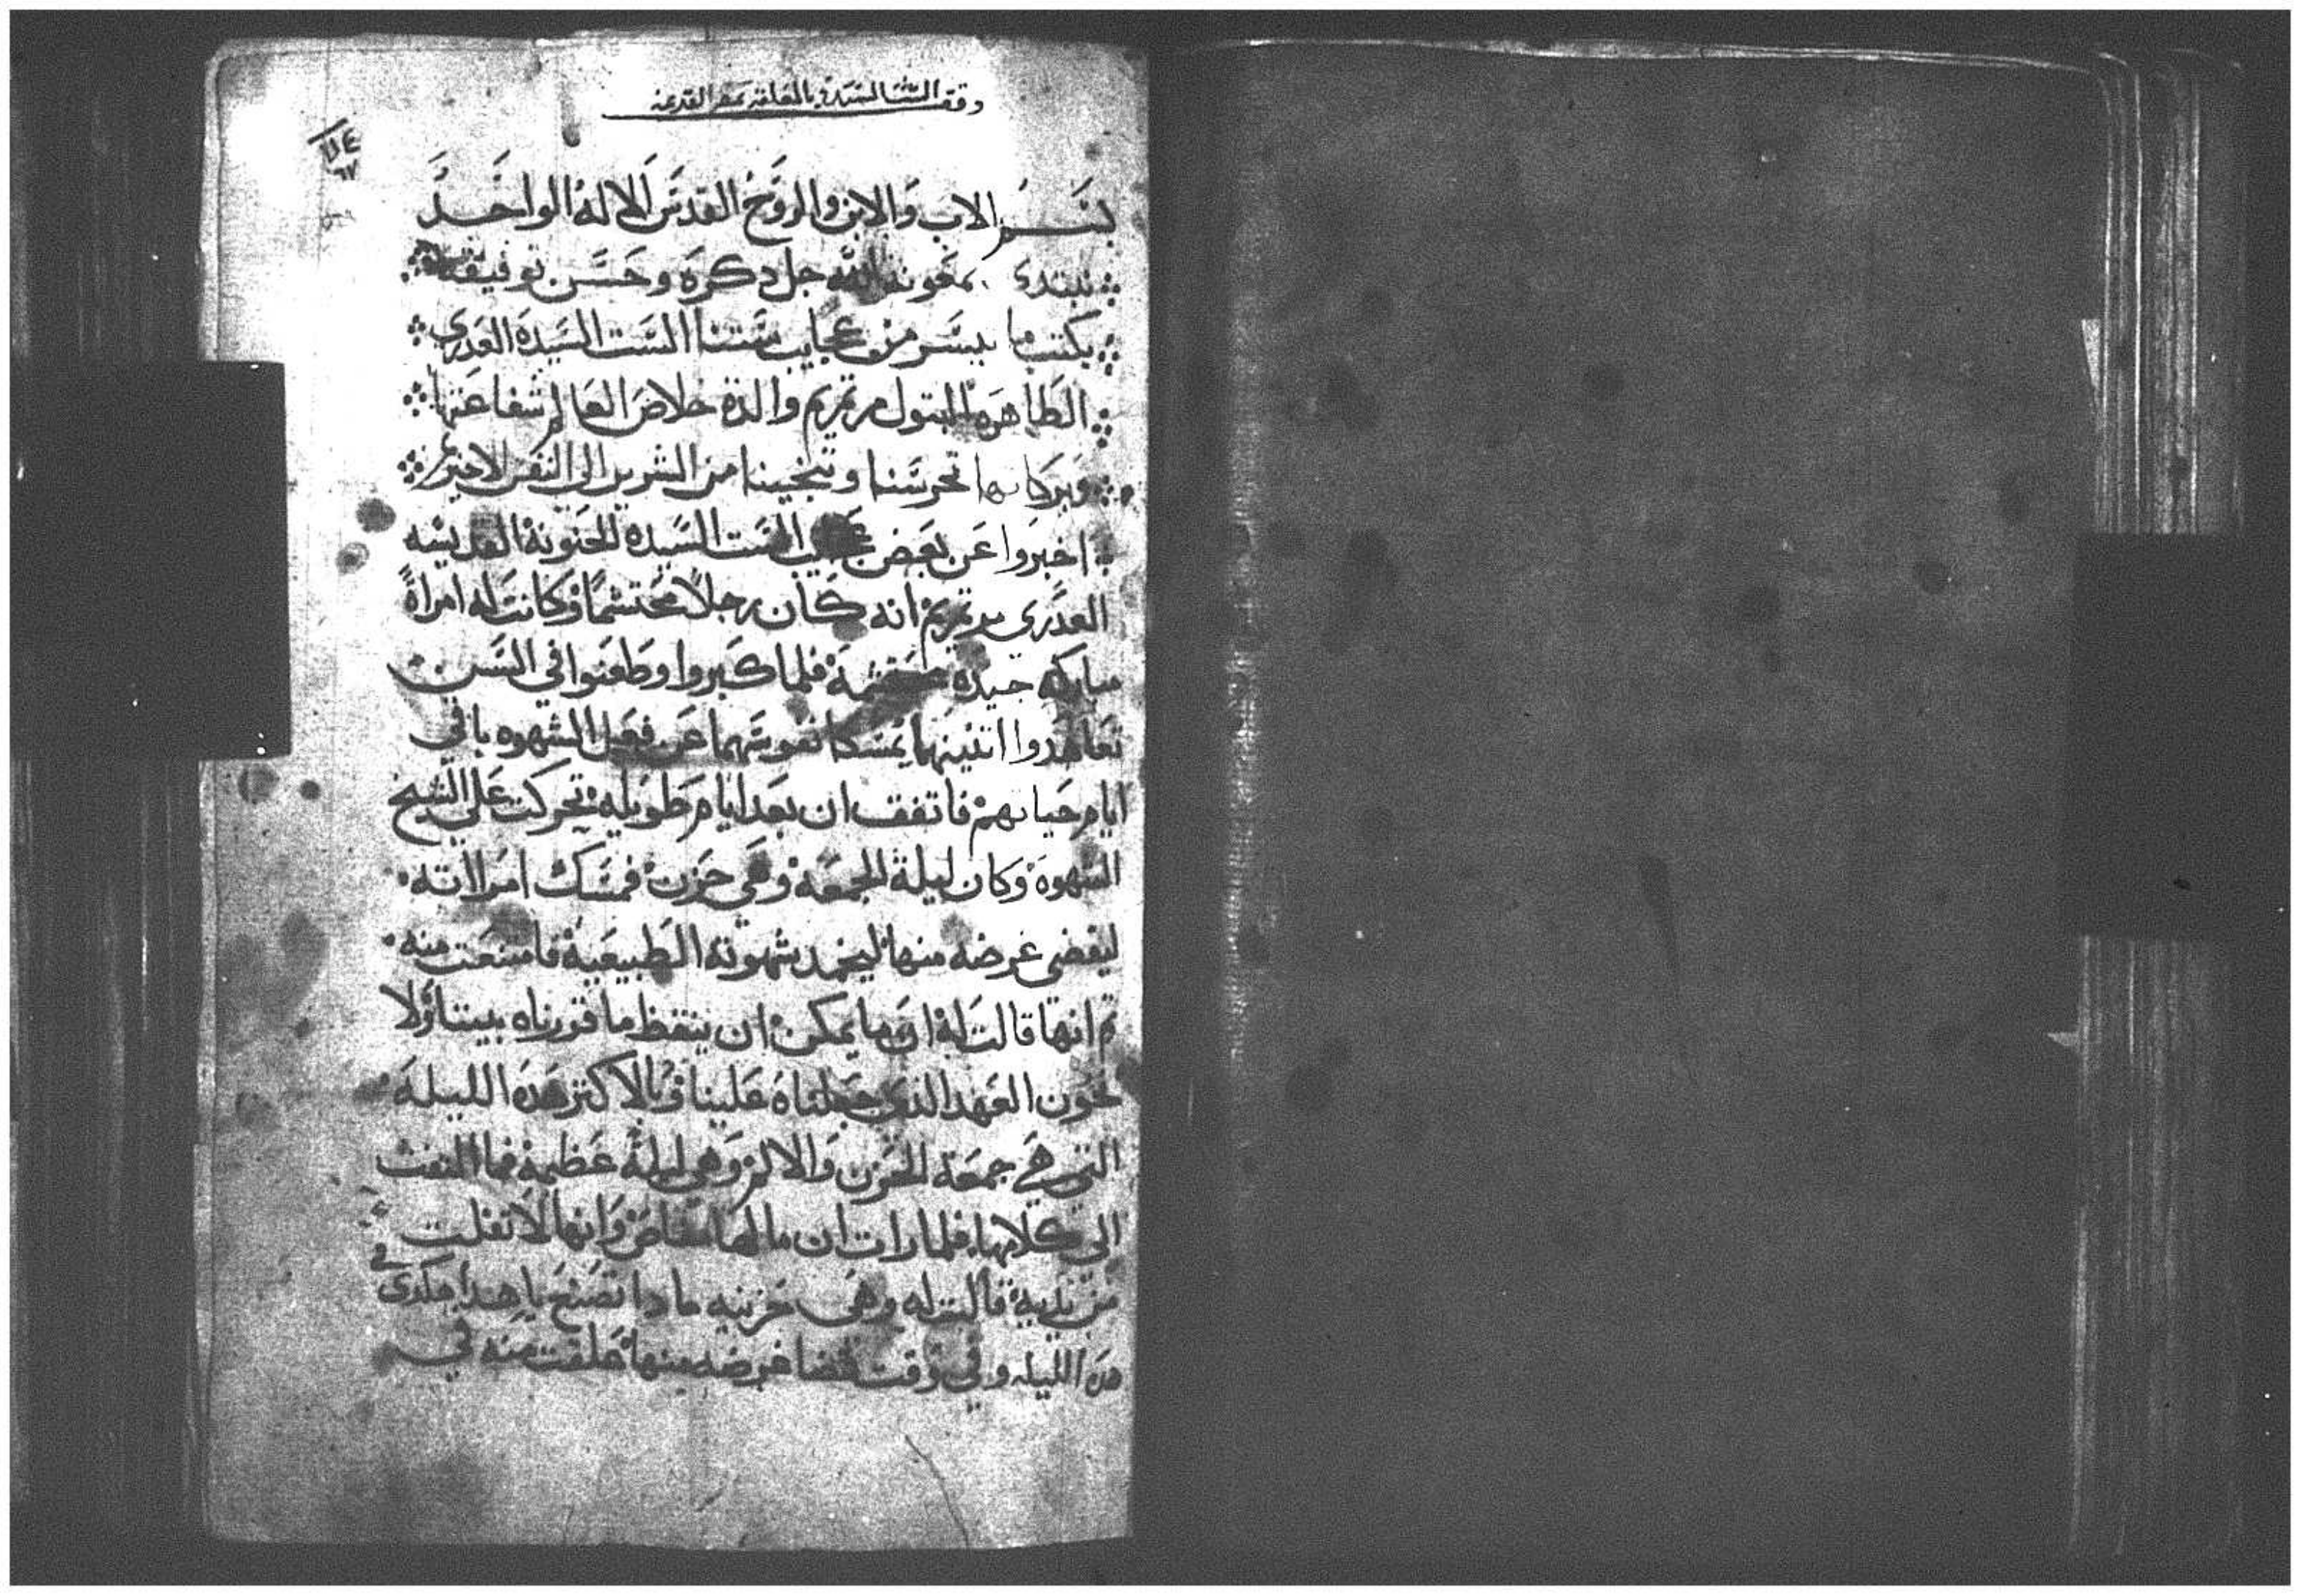 وقف الست السيدة بالمعلقة بمصر القديمة
بسم الاب والابن والروح القدس الاله الواحد
نبتدء بمعونة الله جل دكره وحسن توفيقه
بكتب ما يسر من عجايب ستنا الست السيده العدري
الطاهره البتول مرتمريم والدة خلاص العالم شفاعتها
وبركاتها تحرسنا وتنجينا من الشرير الي النفس الاخير
اخبروا عن بعض عجايب الست السيده الحنونة القديسه
العدري مرتمريم انه كان رجلاً محتشماً وكانت له امراةً
مباركه جيده محتشمة فلما كبروا وطعنوا في السن
تعاهدوا اتنينهما يمسكا نفوسهما عن فعل الشهوه باقي
ايام حياتهم فاتفق ان بعد ايام طويله تحركت علي الشيخ
الشهوه وكان ليلة الجمعه وهي حزن فمسك امراته
ليقضي غرضه منها ليخمد شهوته الطبيعية فامتنعت منه
تم انها قالت له انه ما يمكن ان ينقض ما قررناه بيننا ولا
نخون العهد الذي جعلناه علينا وبالاكتر هده الليله
التي هي جمعة الحزن والالم وهي ليلة عظيمة فما التفت
الي كلامها فلما رات ان مالها مناص وانها لا تفلت
من يديه قالت له وهي حزينه مادا تصنع يا هدا هكدي في
هده الليله وفي وقت قضا غرضه منها علقت منه في